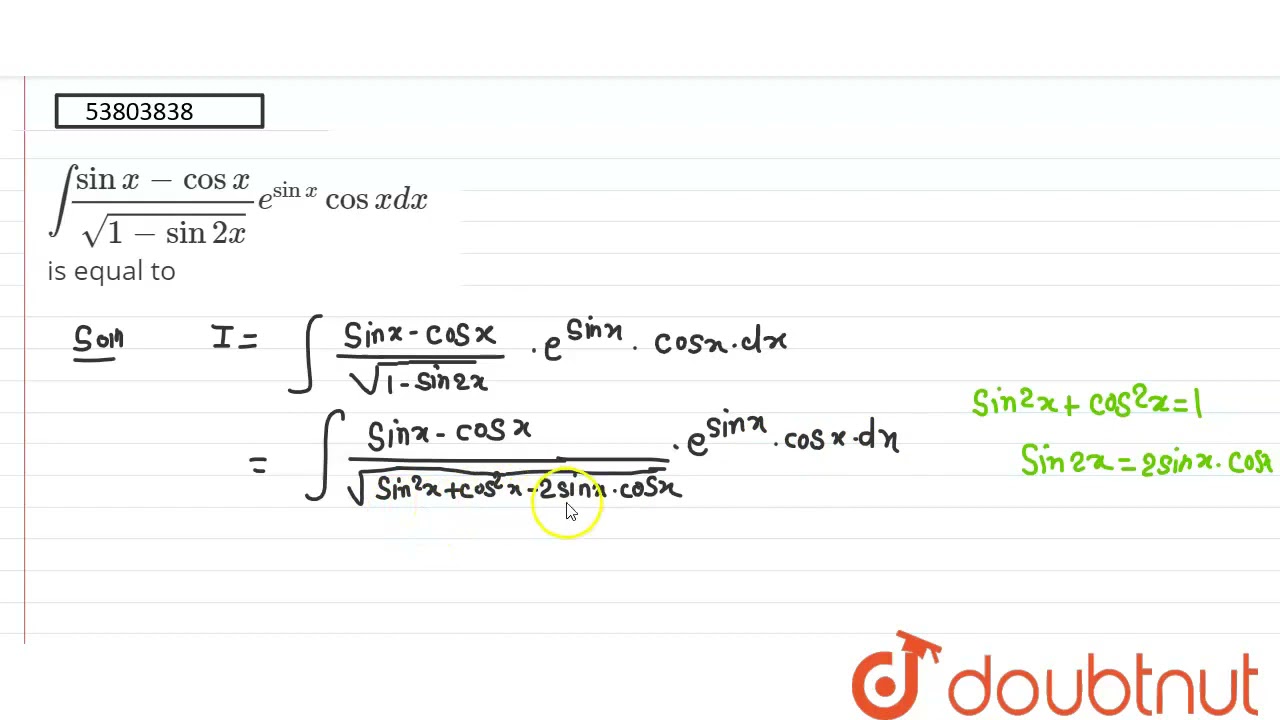 53803838
∫ (sin x − cos x)/√(1 − sin 2x) e^(sin x) cos x dx
is equal to
Soln I = ∫ (Sinx - cosx)/√(1 - Sin2x) · e^(Sinx) · cosx · dx
= ∫ (Sinx - cosx)/√(Sin²x + cos²x - 2sinx · cosx) · e^(Sinx) · cosx · dx
Sin²x + cos²x = 1
Sin2x = 2sinx · cosx
doubtnut